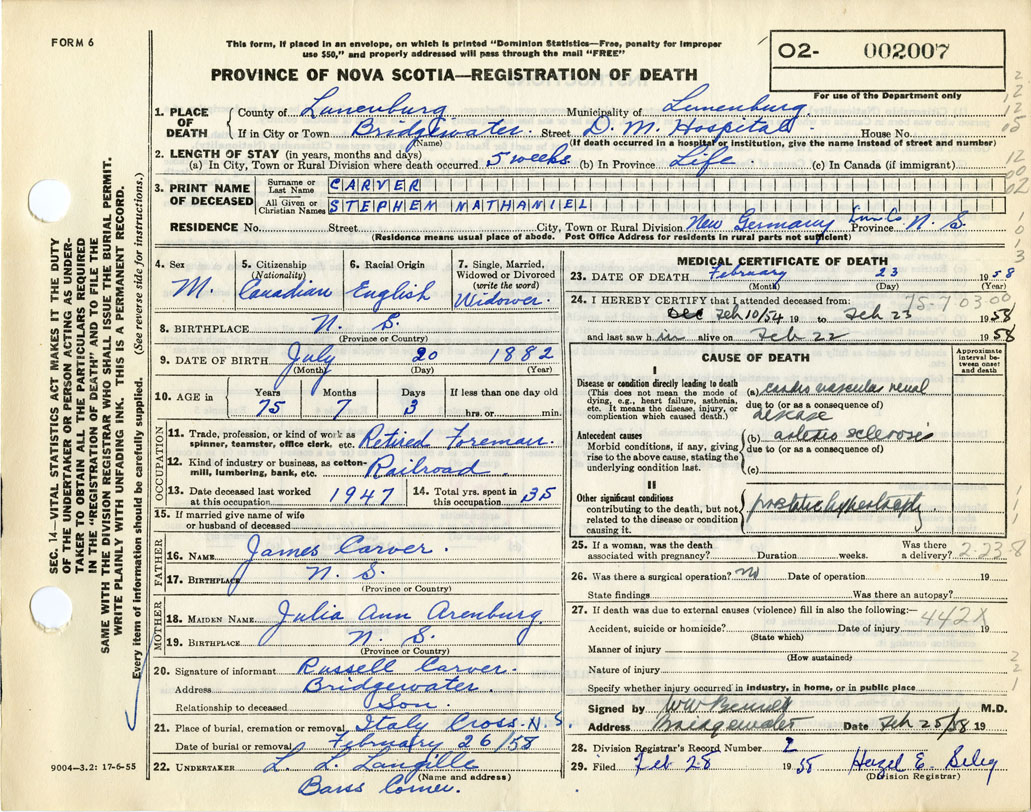 FORM 6
This form, if placed in an envelope, on which is printed "Dominion Statistics—Free, penalty for improper
use $50," and properly addressed will pass through the mail "FREE"
PROVINCE OF NOVA SCOTIA—REGISTRATION OF DEATH
02- 002007
For use of the Department only
1. PLACE OF DEATH County of Lunenburg Municipality of Lunenburg
If in City or Town Bridgewater Street D. M. Hospital House No.
(Name) (If death occurred in a hospital or institution, give the name instead of street and number)
2. LENGTH OF STAY (in years, months and days)
(a) In City, Town or Rural Division where death occurred 5 weeks (b) In Province Life (c) In Canada (if immigrant)
3. PRINT NAME OF DECEASED
Surname or Last Name CARVER
All Given or Christian Names STEPHEN NATHANIEL
RESIDENCE No. Street City, Town or Rural Division New Germany Lun. Co Province N. S.
(Residence means usual place of abode. Post Office Address for residents in rural parts not sufficient)
4. Sex M.
5. Citizenship (Nationality) Canadian
6. Racial Origin English
7. Single, Married, Widowed or Divorced (write the word) Widower
8. BIRTHPLACE N. S.
(Province or Country)
9. DATE OF BIRTH July 20 1882
(Month) (Day) (Year)
10. AGE in Years Months Days If less than one day old
75 7 3 hrs. or min.
OCCUPATION
11. Trade, profession, or kind of work as spinner, teamster, office clerk, etc. Retired Foreman
12. Kind of industry or business, as cotton-mill, lumbering, bank, etc. Railroad
13. Date deceased last worked at this occupation 1947
14. Total yrs. spent in this occupation 35
15. If married give name of wife or husband of deceased
FATHER
16. NAME James Carver
17. BIRTHPLACE N. S.
(Province or Country)
MOTHER
18. MAIDEN NAME Julia Ann Arenburg
19. BIRTHPLACE N. S.
(Province or Country)
20. Signature of informant Russell Carver
Address Bridgewater
Relationship to deceased Son
21. Place of burial, cremation or removal Italy Cross N. S.
Date of burial or removal February 26/58
22. UNDERTAKER L. L. Langille
(Name and address)
Barss Corner
MEDICAL CERTIFICATE OF DEATH
23. DATE OF DEATH February 23 1958
(Month) (Day) (Year)
24. I HEREBY CERTIFY that I attended deceased from: 75-7 03-00
Feb 10/54 19 to Feb 23 1958
and last saw him alive on Feb 22 1958
CAUSE OF DEATH
Approximate interval between onset and death
I
Disease or condition directly leading to death
(This does not mean the mode of dying, e.g., heart failure, asthenia, etc. It means the disease, injury, or complication which caused death.)
(a) cardio vascular renal
due to (or as a consequence of)
disease
Antecedent causes
Morbid conditions, if any, giving rise to the above cause, stating the underlying condition last.
(b) arterio sclerosis
due to (or as a consequence of)
(c)
II
Other significant conditions
contributing to the death, but not related to the disease or condition causing it.
prostatic hypertrophy
25. If a woman, was the death associated with pregnancy? Duration weeks. Was there a delivery? 2-23-8
26. Was there a surgical operation? No Date of operation 19
State findings Was there an autopsy?
27. If death was due to external causes (violence) fill in also the following:—
442X
Accident, suicide or homicide? Date of injury 19
(State which)
Manner of injury
(How sustained)
Nature of injury
Specify whether injury occurred in industry, in home, or in public place
Signed by W W Bennett M.D.
Address Bridgewater Date Feb 25/58 19
28. Division Registrar's Record Number 2
29. Filed Feb 28 1958 Hazel E.
(Division Registrar)
SEC. 14—VITAL STATISTICS ACT MAKES IT THE DUTY
OF THE UNDERTAKER OR PERSON ACTING AS UNDER-
TAKER TO OBTAIN ALL THE PARTICULARS REQUIRED
IN THE "REGISTRATION OF DEATH" AND TO FILE THE
SAME WITH THE DIVISION REGISTRAR WHO SHALL ISSUE THE BURIAL PERMIT.
WRITE PLAINLY WITH UNFADING INK. THIS IS A PERMANENT RECORD.
Every item of information should be carefully supplied. (See reverse side for instructions.)
9004—3.2: 17-6-55